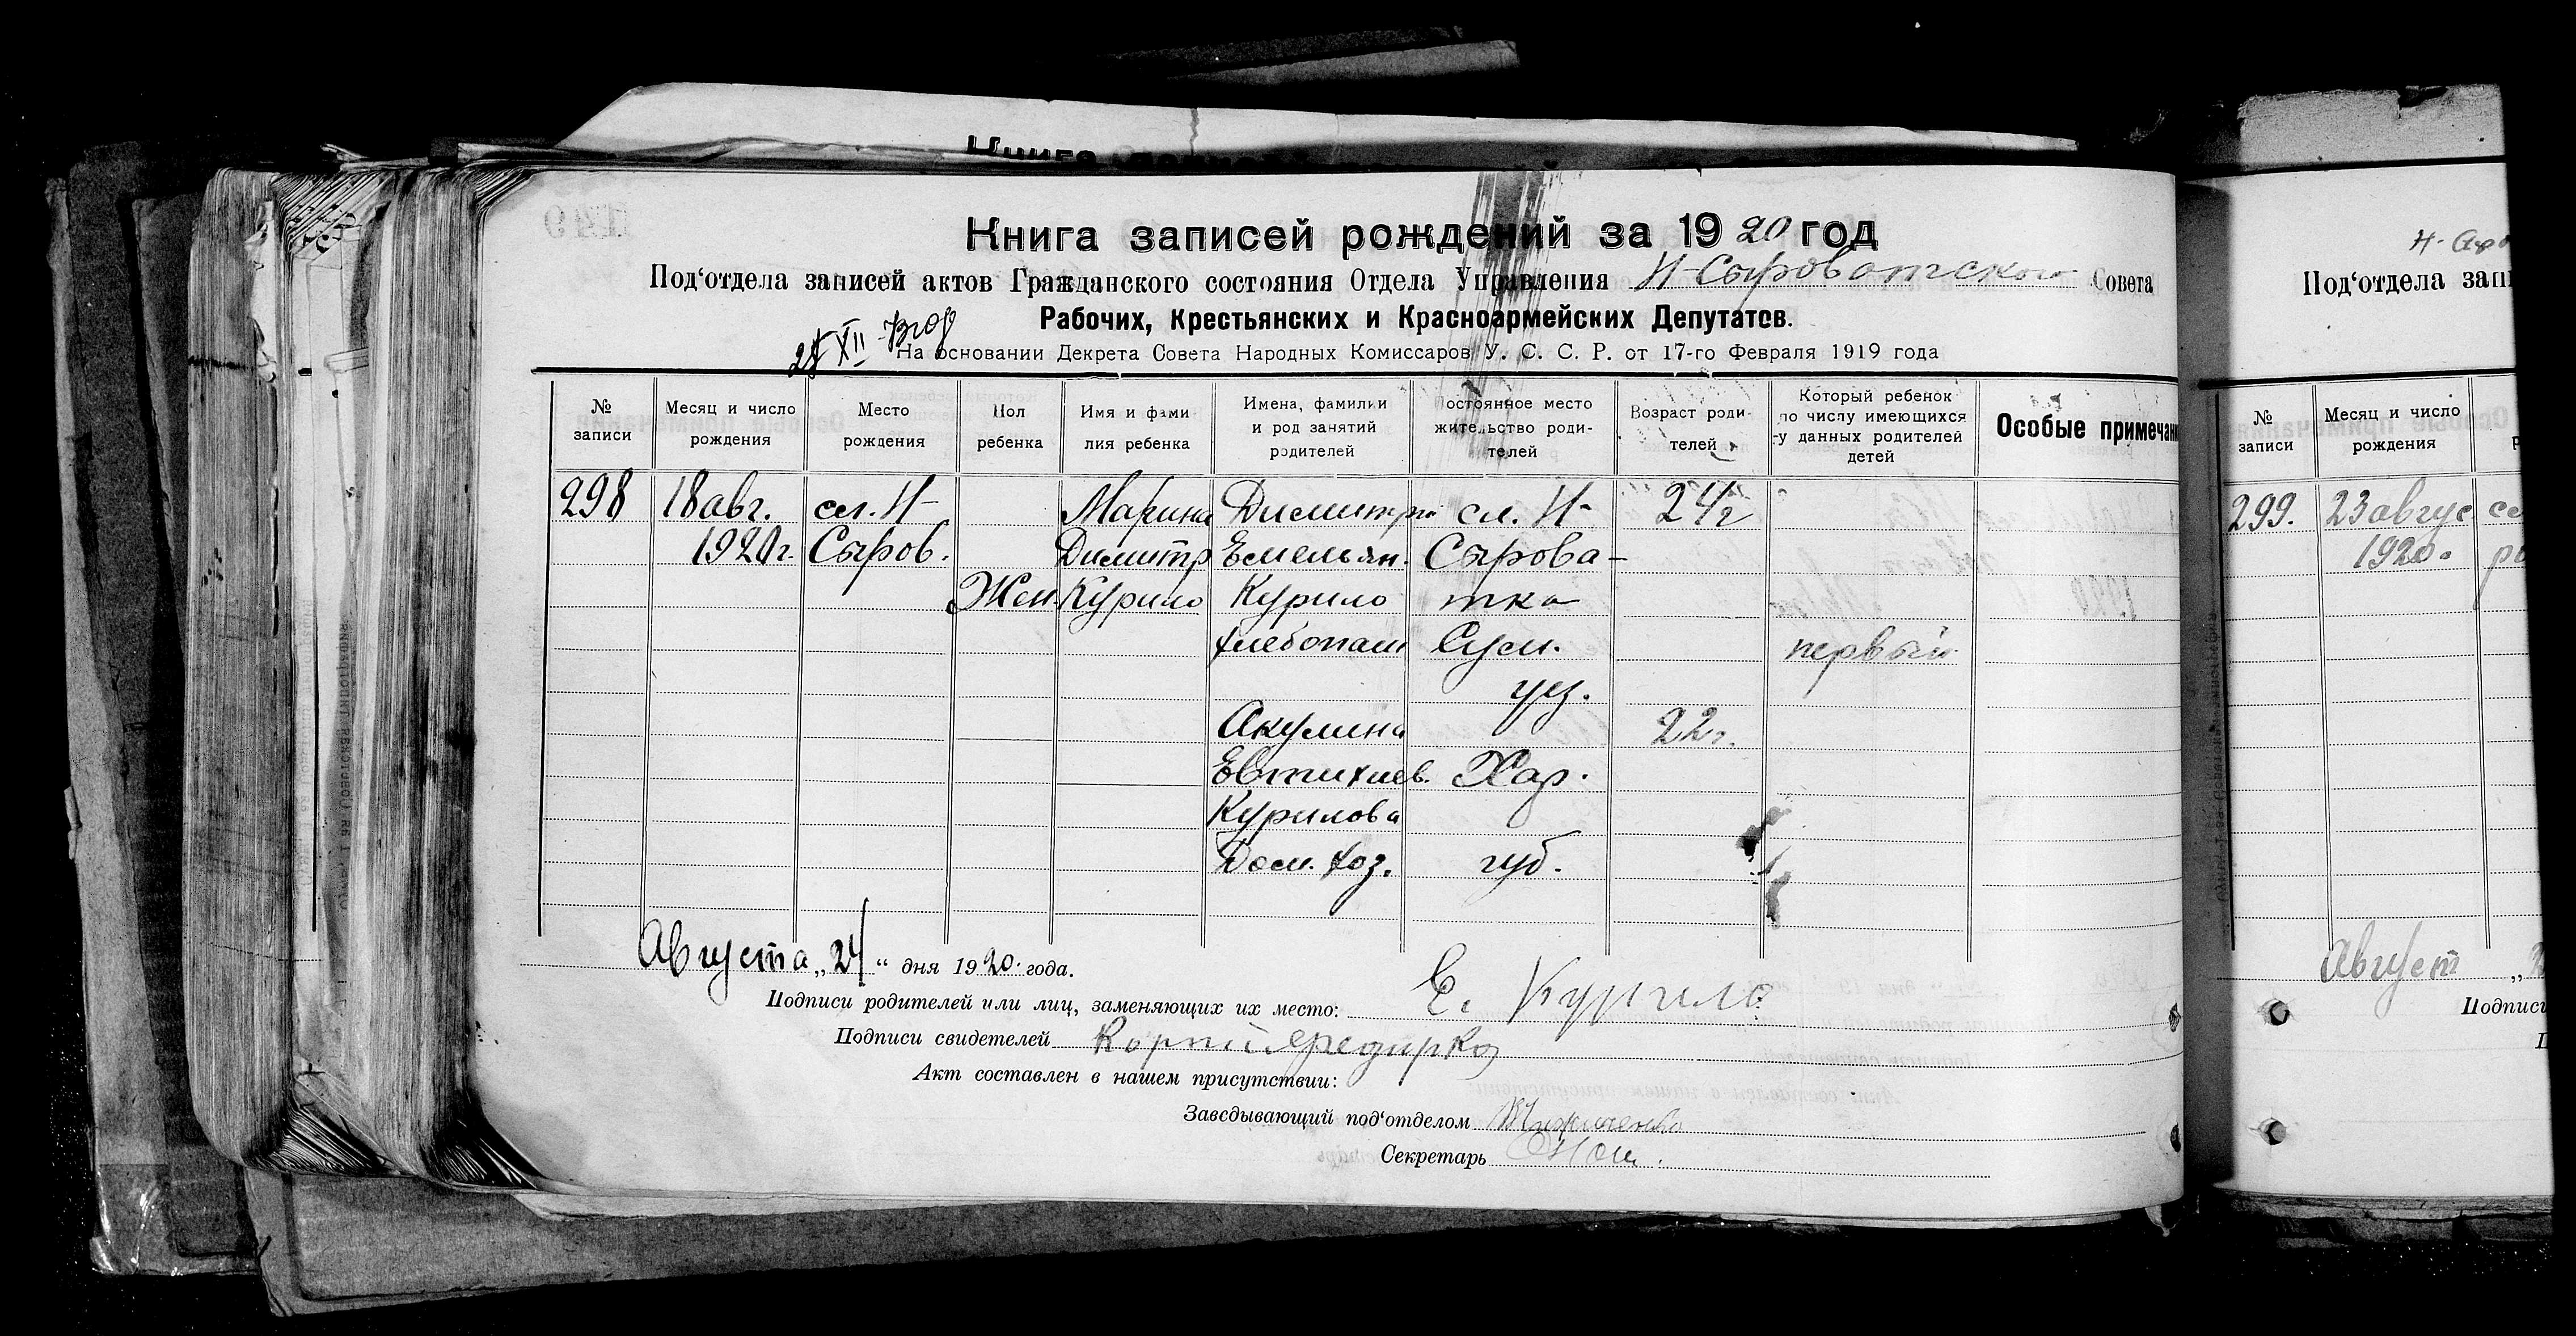 Книга записей рождений за 1920 год
Под‘отдела записей актов Гражданского состояния Отдела Управления Н-Сыроватского Совета
Рабочих, Крестьянских и Красноармейских Депутатов.
28 XII
На основании Декрета Совета Народных Комиссаров У. С. С. Р. от 17-го Февраля 1919 года
№ записи
Месяц и число рождения
Место рождения
Пол ребенка
Имя и фами лия ребенка
Имена, фамилии и род занятий родителей
Постоянное место жительство роди- телей
Возраст роди- телей
Который ребенок по числу имеющихся у данных родителей детей
Особые примечани
298 18 авг. сл. Н- Марина Димитри сл. Н- 24 г
1920 г. Сыров. Димитр Емельян. Сырова-
Жен. Курило Курило тка
хлебопаш Сум. первый
уез.
Акулина 22 г.
Евтихиев. Хар.
Курилова
Дом. хоз. губ.
Августа „24“ дня 1920 года.
Подписи родителей или лиц, заменяющих их место: Е. Курило
Подписи свидетелей
Акт составлен в нашем присутствии:
Заведывающий под‘отделом
Секретарь
Под‘отдела запи
№ записи
Месяц и число рождения
299. 23 авгус се
1920
Август „2
Подписи